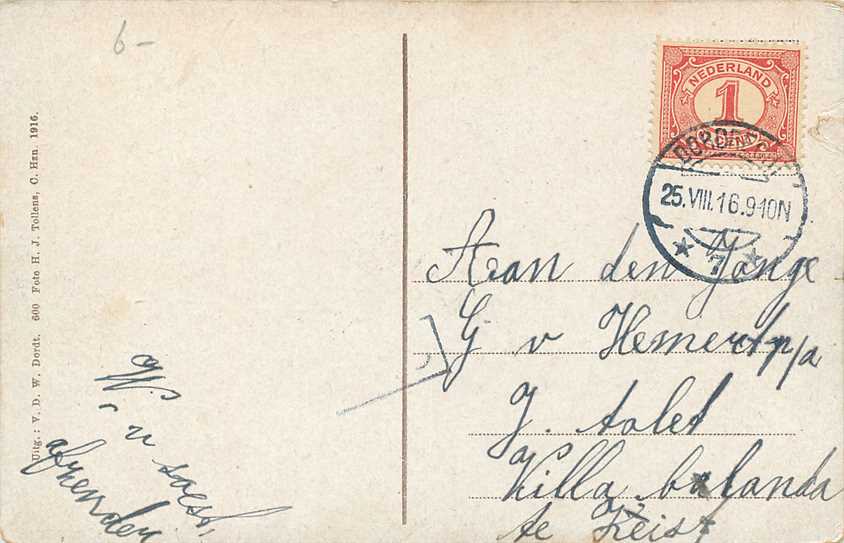 6-
Uitg.: V. D. W. Dordt. 600 Foto H. J. Tollens, C. Hzn. 1916.
NEDERLAND
1
CENT
DORDRECHT
25.VIII.16.9-10N
7
Aaan den Jonge
G v Hemert p/a
J. tolet
Villa balanda
te Zeist
W. v soest,
afzender